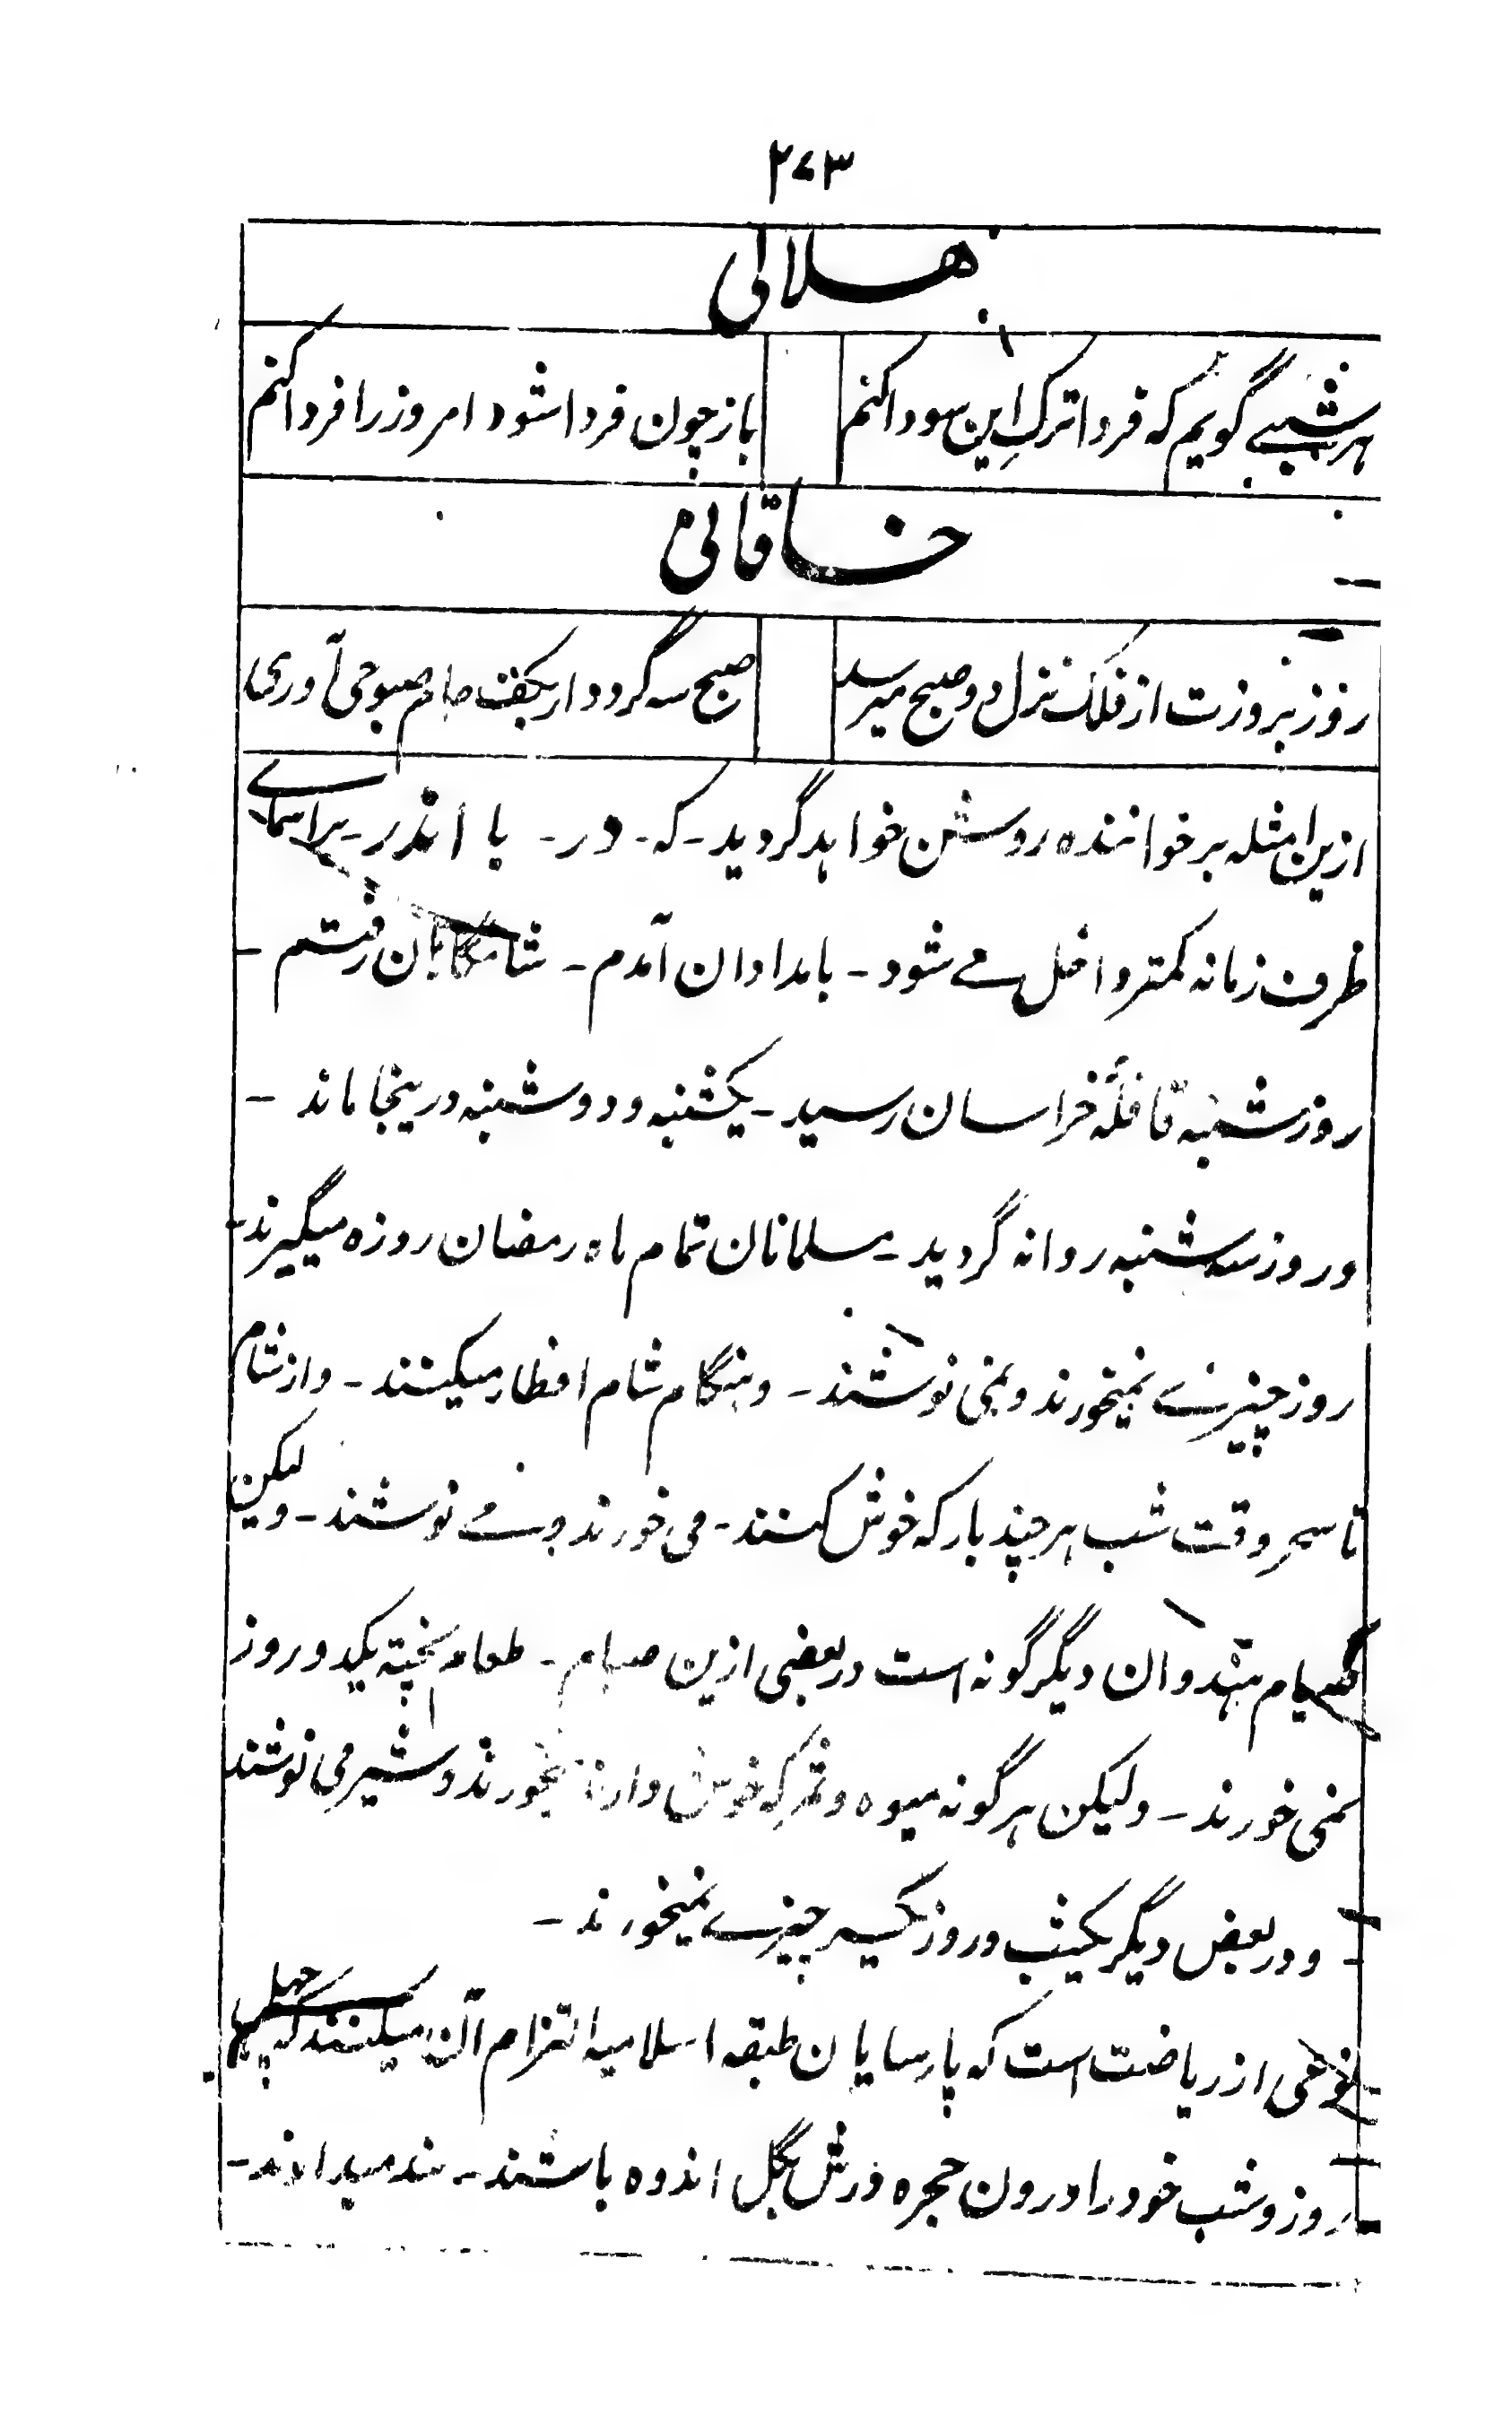 ۲۷۳
هلالی
هر شبے گویم که فردا ترکِ این سودا کنم
باز چون فردا شود امروز را فردا کنم
خاقانی
روز بروزت از فلک نزل دو صبح میرسد
صبح سه گردد ار بکف جام صبوحی آوری
ازین امثله بر خواننده روشن خواهد گردید - که - در - با اندر - براسماے
ظرف زمانه کمتر داخل مے شود - بامدادان آمدم - شامگاہان رفتم -
روز شنبه قافلهٔ خراسان رسید - یکشنبه و دوشنبه درینجا ماند -
و روز سه شنبه روانه گردید - مسلمانان تمام ماه رمضان روزه میگیرند -
روز چیزے نمیخورند و نمی نوشند - و هنگام شام افطار میکنند - و از شام
تا سحر وقت شب هر چند بار که خوش کنند - می خورند و مے نوشند - ولیکن
صیام هندوان دیگر گونه است در بعضی ازین صیام - طعام پخته یکدو روز
نمی خورند - ولیکن هر گونه میوه و ثمر که خوش دارند بخورند و شیر می نوشند
- و در بعض دیگر یکشب و روز یکسر چیزے نمیخورند -
نوعی از ریاضت است که پارسایان طبقه اسلامیه التزام آن میکنند که چهل
روز و شب خود را درون حجره درش بگل اندوه باشند - بند میدارند -